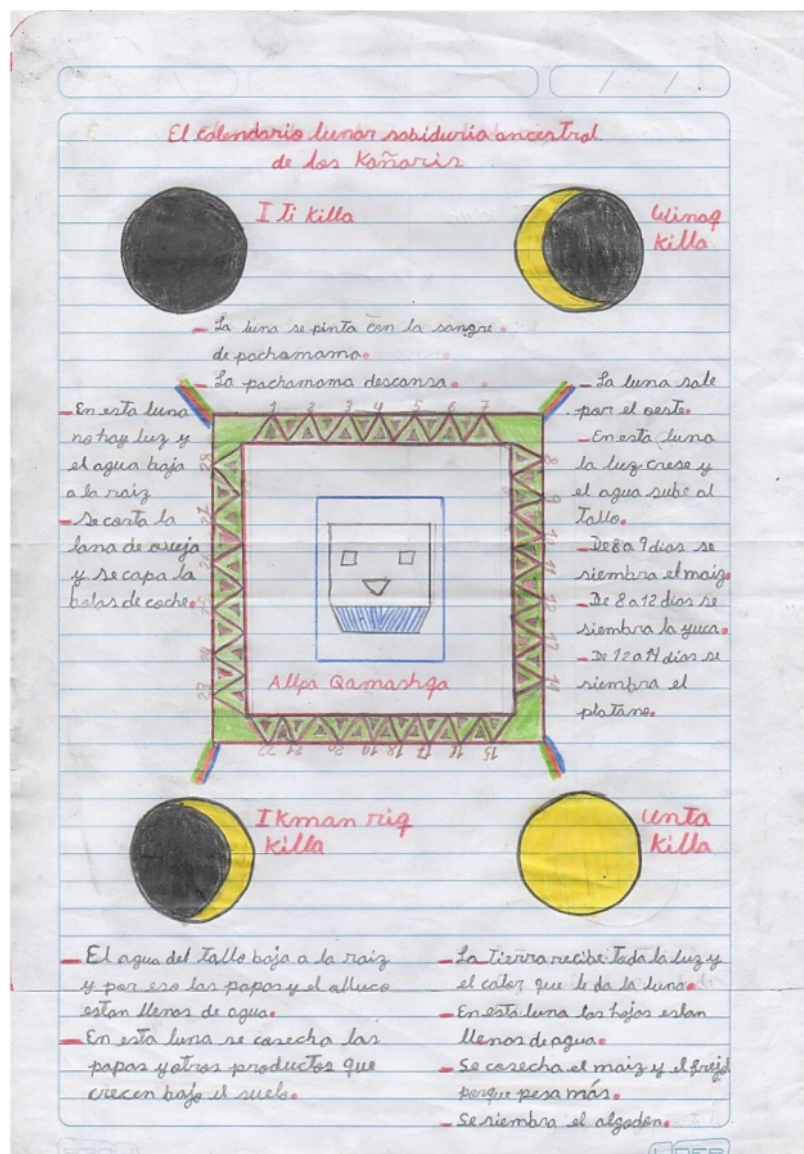 El calendario lunar sabiduria ancestral
de los Kañaris
I ti killa
Winaq
killa
- La luna se pinta con la sangre.
de pachamama.
- La pachamama descansa.
- En esta luna
no hay luz y
el agua baja
a la raiz
- Se corta la
lana de oveja
y se capa la
bolas de coche.
1 2 3 4 5 6 7
8
9
10
11
12
13
14
15
16
17
18
19
20
21
22
23
24
25
26
27
28
Allpa Qamashqa
- La luna sale
por el oeste.
- En esta luna
la luz crese y
el agua sube al
Tallo.
- De 8 a 9 dias se
siembra el maiz.
- De 8 a 12 dias se
siembra la yuca.
- De 12 a 14 dias se
siembra el
platano.
I Kman riq
killa
unta
killa
- El agua del Tallo baja a la raiz
y por eso las papas y el olluco
estan llenos de agua.
- En esta luna se cosecha las
papas y otros productos que
crecen bajo el suelo.
- La Tierra recibe Toda la luz y
el calor que le da la luna.
- En esta luna las hojas estan
llenos de agua.
- Se cosecha el maiz y el frejol
porque pesa más.
- Se siembra el algodon.